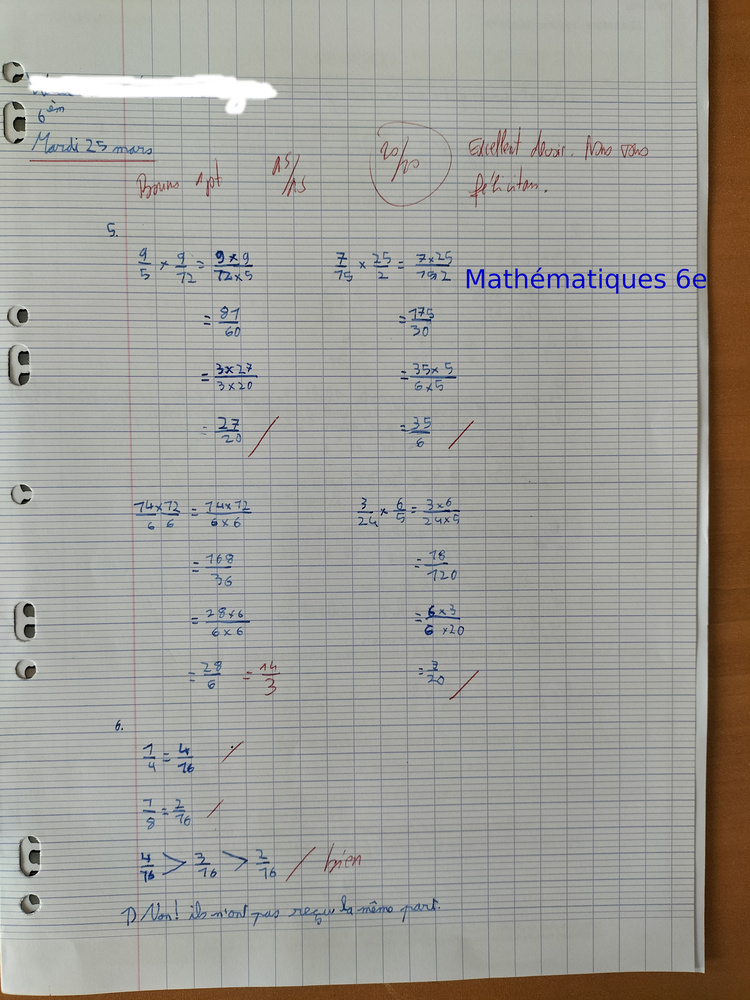 6èm
Mardi 25 mars
Bonus 1pt 15/15 20/20 Excellent devoir. Nous vous
félicitons.
5.
9/5 × 9/12 = 9×9/12×5
= 81/60
= 3×27/3×20
= 27/20
7/15 × 25/2 = 7×25/15×2
Mathématiques 6e
= 175/30
= 35×5/6×5
= 35/6
14×12/6 6 = 14×12/6×6
= 168/36
= 28×6/6×6
= 28/6 = 14/3
3/24 × 6/5 = 3×6/24×5
= 18/120
= 6×3/6×20
= 3/20
6.
1/4 = 4/16
1/8 = 2/16
4/16 > 3/16 > 2/16 bien
1) Non! ils n'ont pas reçu la même part.